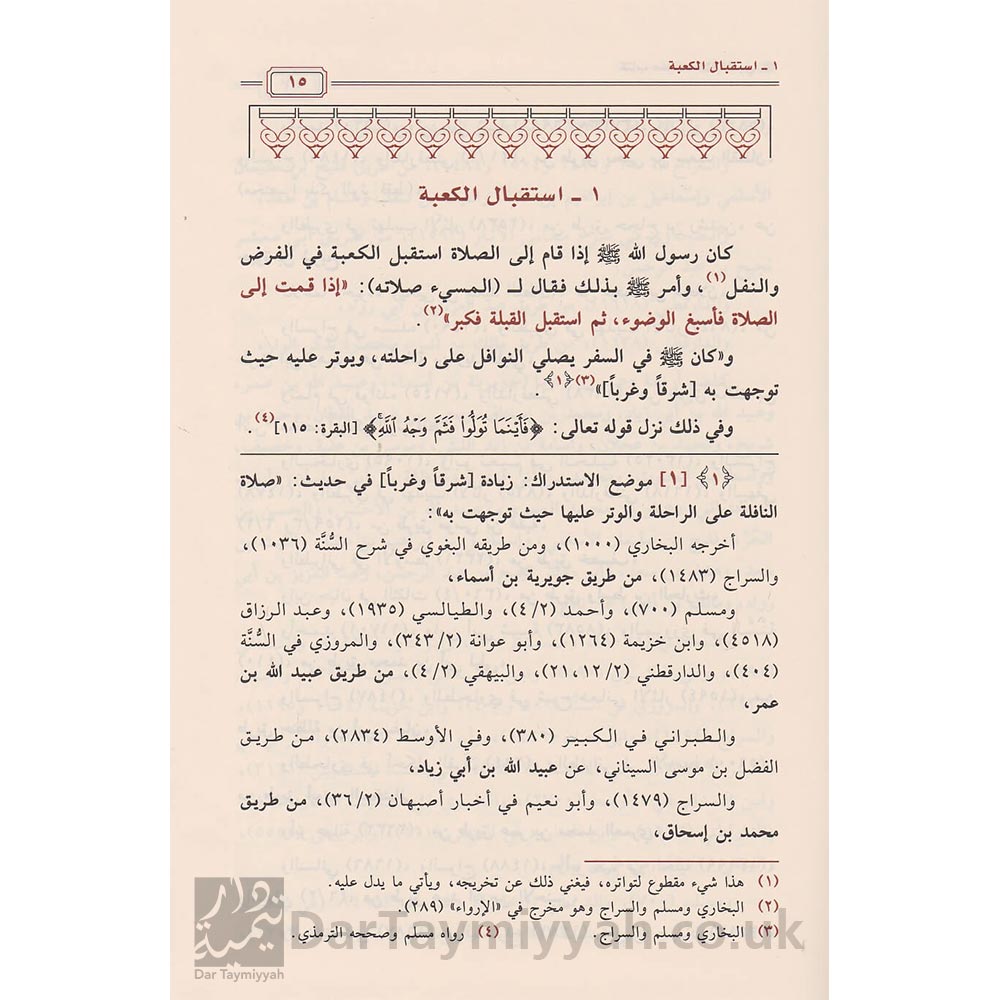 ١ ـ استقبال الكعبة
١٥
١ ـ استقبال الكعبة
كان رسول الله ﷺ إذا قام إلى الصلاة استقبل الكعبة في الفرض
والنفل(١)، وأمر ﷺ بذلك فقال لـ (المسيء صلاته): «إذا قمت إلى
الصلاة فأسبغ الوضوء، ثم استقبل القبلة فكبر»(٢).
و«كان ﷺ في السفر يصلي النوافل على راحلته، ويوتر عليه حيث
توجهت به [شرقاً وغرباً]»(٣)﴿١﴾.
وفي ذلك نزل قوله تعالى: ﴿فَأَيْنَمَا تُوَلُّوا فَثَمَّ وَجْهُ اللَّهِ﴾ [البقرة: ١١٥](٤).
﴿١﴾ [١] موضع الاستدراك: زيادة [شرقاً وغرباً] في حديث: «صلاة
النافلة على الراحلة والوتر عليها حيث توجهت به»:
أخرجه البخاري (١٠٠٠)، ومن طريقه البغوي في شرح السُّنَّة (١٠٣٦)،
والسراج (١٤٨٣)، من طريق جويرية بن أسماء،
ومسلم (٧٠٠)، وأحمد (٤/٢)، والطيالسي (١٩٣٥)، وعبد الرزاق
(٤٥١٨)، وابن خزيمة (١٢٦٤)، وأبو عوانة (٣٤٣/٢)، والمروزي في السُّنَّة
(٤٠٤)، والدارقطني (٢١،١٢/٢)، والبيهقي (٤/٢)، من طريق عبيد الله بن
عمر،
والطبراني في الكبير (٣٨٠)، وفي الأوسط (٢٨٣٤)، من طريق
الفضل بن موسى السيناني، عن عبيد الله بن أبي زياد،
والسراج (١٤٧٩)، وأبو نعيم في أخبار أصبهان (٣٦/٢)، من طريق
محمد بن إسحاق،
(١) هذا شيء مقطوع لتواتره، فيغني ذلك عن تخريجه، ويأتي ما يدل عليه.
(٢) البخاري ومسلم والسراج وهو مخرج في «الإرواء» (٢٨٩).
(٣) البخاري ومسلم والسراج. (٤) رواه مسلم وصححه الترمذي.
دار تيمية
Dar Taymiyyah
DarTaymiyyah.co.uk